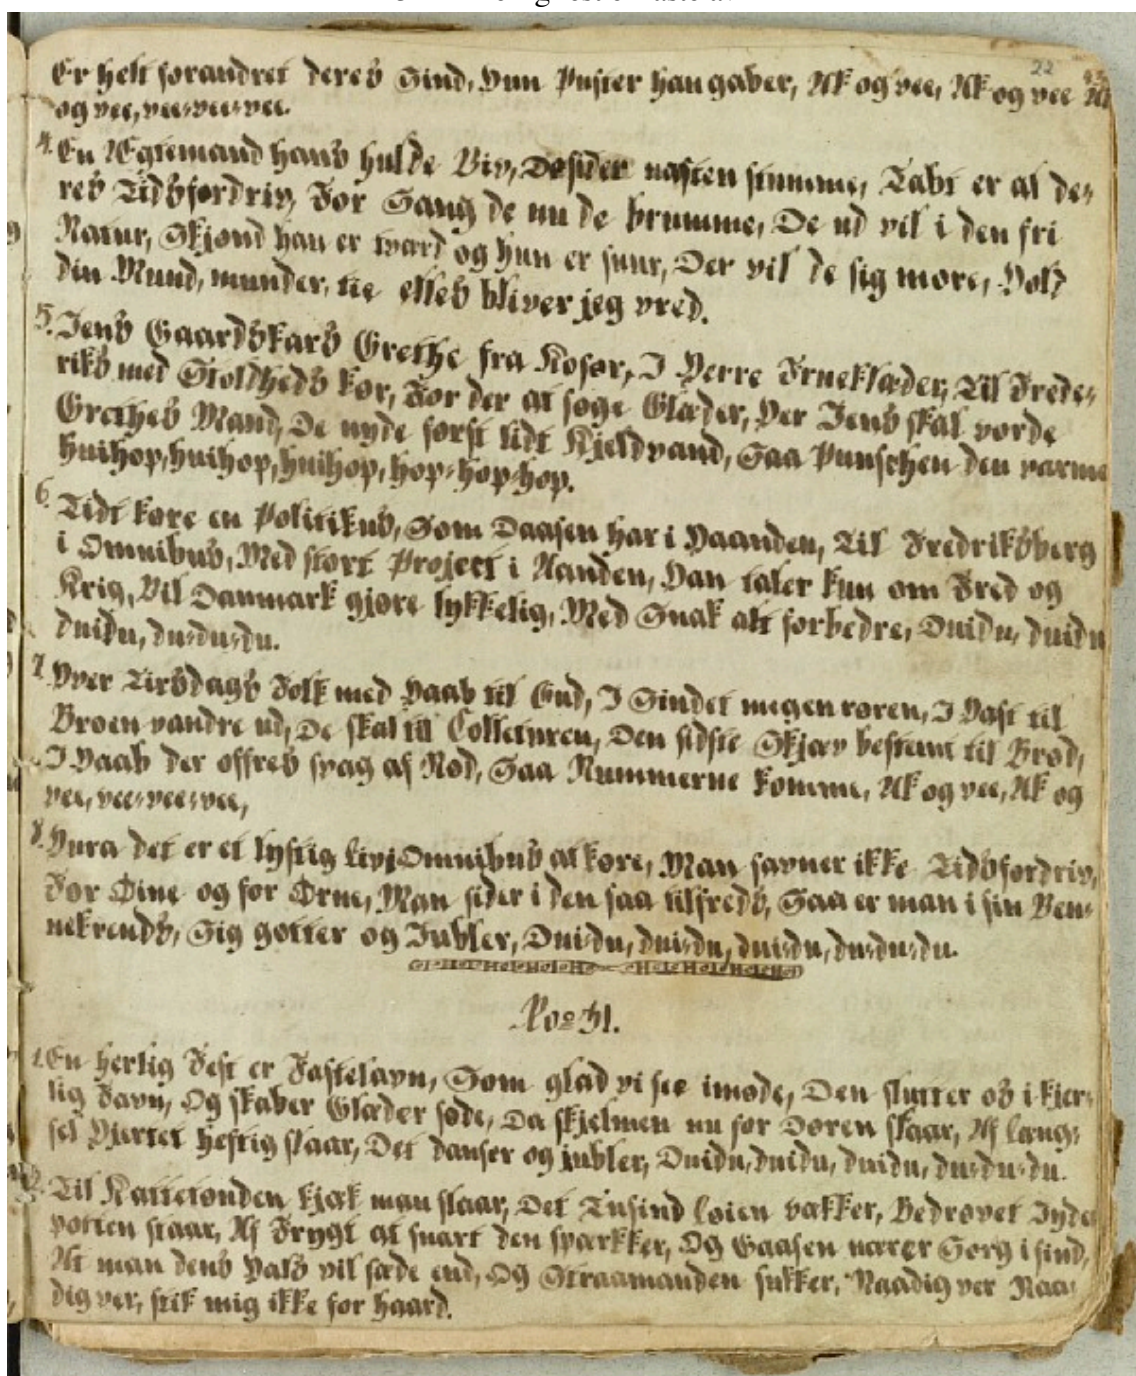 22
Er helt forandret deres Sind, Hun Puster han gaber, Ak og vee, Ak og vee Ak
og vee, vee-vee-vee.
4. En Ægtemand hans hulde Viv, De sider næsten stumme, Tabt er al de-
res Tidsfordriv, For Sang de nu de brumme, De ud vil i den fri
Natur, Skjønd han er tværd og hun er suur, Der vil de sig more, Hold
din Mund, munder, tie elles bliver jeg vred.
5. Jens Gaardskarls Grethe fra Kosør, I Herre Frueklæder, Til Frede-
riks med Stoldheds kør, For der at søge Glæder, Her Jens skal vorde
Grethes Mand, De nyde først lidt Kjeldvand, Saa Punschen den varme
huihop, huihop, huihop, hop-hop-hop.
6. Tidt køre en Politikus, Som Daasen har i Haanden, Til Fredriksberg
i Omnibus, Med stort Project i Aanden, Han taler kun om Fred og
Krig, Vil Danmark gjøre lykkelig, Med Snak alt forbedre, Duidu, duidu
duidu, du-du-du.
7. Hver Tirsdags Folk med Haab til Gud, I Sindet megen røren, I Hast til
Broen vandre ud, De skal til Collecturen, Den sidste Skjærv bestemt til Brød,
I Haab der offres svag af Nød, Saa Nummerne komme, Ak og vee, Ak og
vee, vee-vee-vee,
8. Hura det er et lystig liv i Omnibus at køre, Man savner ikke Tidsfordriv,
For Øine og for Ørne, Man sider i den saa tilfreds, Saa er man i sin Ven-
nekrends, Sig gotter og Jubler, Dui-du, dui-du, dui-du, du-du-du.
No 31.
1. En herlig Fest er Fastelavn, Som glad vi see imøde, Den slutter os i kjær-
lig Favn, Og skaber Glæder søde, Da skjelmen nu for Døren slaar, Af læng-
sel Hjertet heftig slaar, Det danser og jubler, Duidu, duidu, duidu, du-du-du.
2. Til Kattetønden kjæk man slaar, Det Tusind løien vækker, Bedrøvet Jyde
potten staar, Af Frygt at snart den sprækker, Og Gaasen nærer Sorg i sind,
At man dens Hals vil sæde end, Og Straamanden sukker, Naadig ver Naa-
dig ver, stik mig ikke for haard.